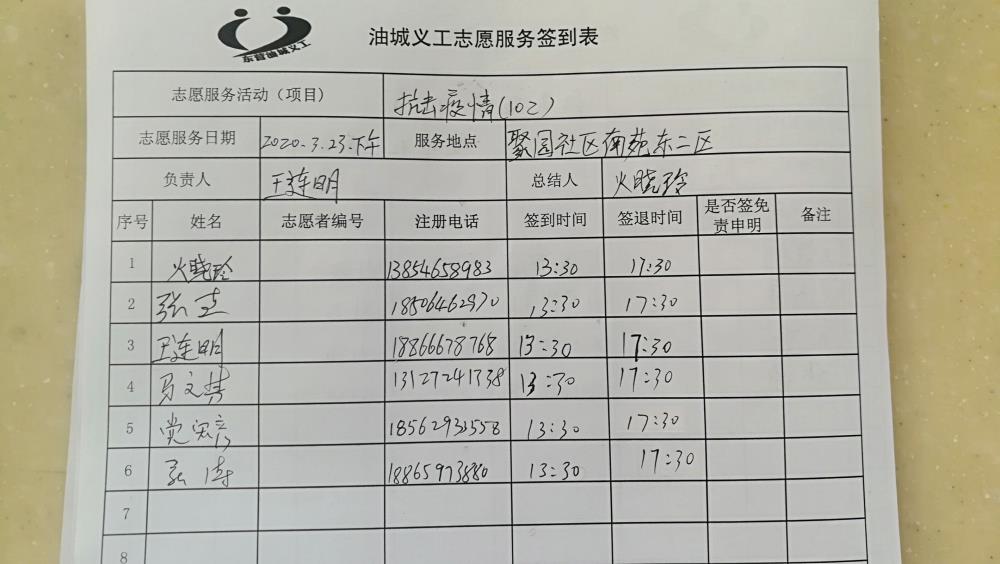 东营油城义工
油城义工志愿服务签到表
志愿服务活动（项目） 抗击疫情(102)
志愿服务日期 2020.3.23.下午 服务地点 聚园社区南苑东二区
负责人 王连明 总结人 火晓玲
序号 姓名 志愿者编号 注册电话 签到时间 签退时间 是否签免责申明 备注
1 火晓玲 13854658983 13:30 17:30
2 张 杰 18506462970 13:30 17:30
3 王连明 18866678768 13:30 17:30
4 马文 13127241738 13:30 17:30
5 党 18562931558 13:30 17:30
6 18865973880 13:30 17:30
7
8